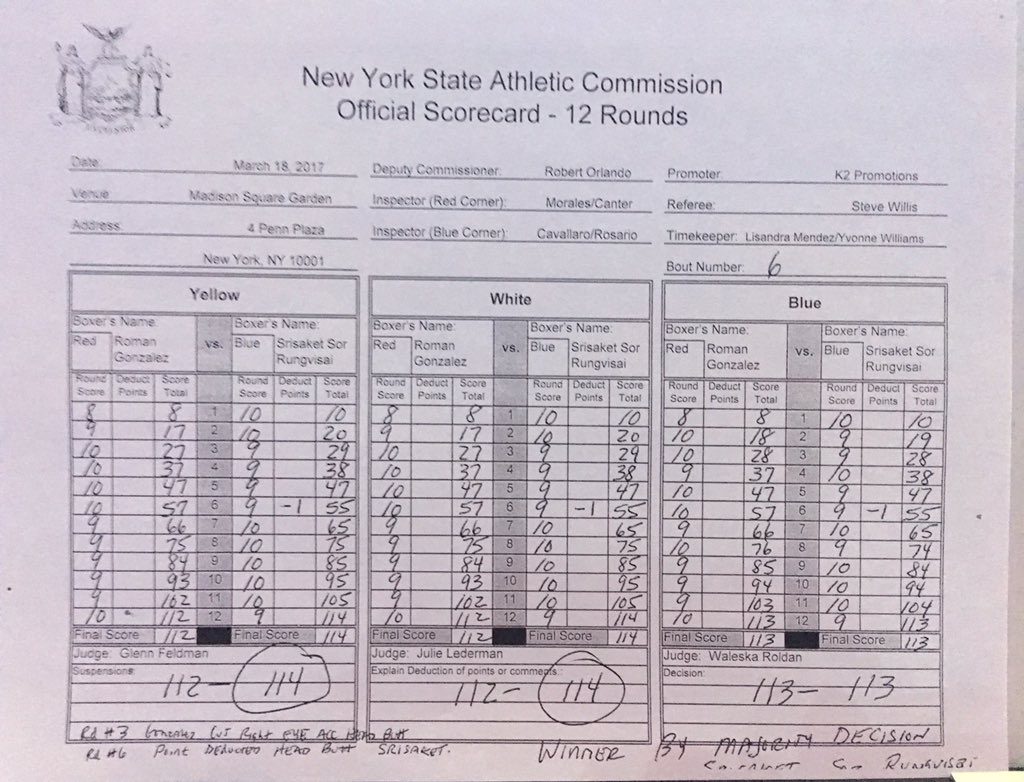 New York State Athletic Commission
Official Scorecard - 12 Rounds
Date: March 18, 2017 Deputy Commissioner: Robert Orlando Promoter: K2 Promotions
Venue Madison Square Garden Inspector (Red Corner): Morales/Canter Referee: Steve Willis
Address: 4 Penn Plaza Inspector (Blue Corner): Cavallaro/Rosario Timekeeper: Lisandra Mendez/Yvonne Williams
New York, NY 10001 Bout Number: 6
Yellow White Blue
Boxer's Name: Boxer's Name: Boxer's Name: Boxer's Name: Boxer's Name: Boxer's Name:
Red Roman vs. Blue Srisaket Sor Red Roman vs. Blue Srisaket Sor Red Roman vs. Blue Srisaket Sor
Gonzalez Rungvisai Gonzalez Rungvisai Gonzalez Rungvisai
Round Deduct Score Round Deduct Score Round Deduct Score Round Deduct Score Round Deduct Score Round Deduct Score
Score Points Total Score Points Total Score Points Total Score Points Total Score Points Total Score Points Total
8 8 1 10 10 8 8 1 10 10 8 8 1 10 10
9 17 2 10 20 9 17 2 10 20 10 18 2 9 19
10 27 3 9 29 10 27 3 9 29 10 28 3 9 28
10 37 4 9 38 10 37 4 9 38 9 37 4 10 38
10 47 5 9 47 10 47 5 9 47 10 47 5 9 47
10 57 6 9 -1 55 10 57 6 9 -1 55 10 57 6 9 -1 55
9 66 7 10 65 9 66 7 10 65 9 66 7 10 65
9 75 8 10 75 9 75 8 10 75 10 76 8 9 74
9 84 9 10 85 9 84 9 10 85 9 85 9 10 84
9 93 10 10 95 9 93 10 10 95 9 94 10 10 94
9 102 11 10 105 9 102 11 10 105 9 103 11 10 104
10 112 12 9 114 10 112 12 9 114 10 113 12 9 113
Final Score 112 Final Score 114 Final Score 112 Final Score 114 Final Score 113 Final Score 113
Judge: Glenn Feldman Judge: Julie Lederman Judge: Waleska Roldan
Suspensions: Explain Deduction of points or comments: Decision:
112- 114 112- 114 113- 113
Rd #3 Gonzalez Cut Right EYE ACC HEAD Butt
Rd #6 Point DEDUCTED HEAD Butt SRISAKET. WINNER By MAJORITY DECISION
SRISAKET Sor RUNGVISAI